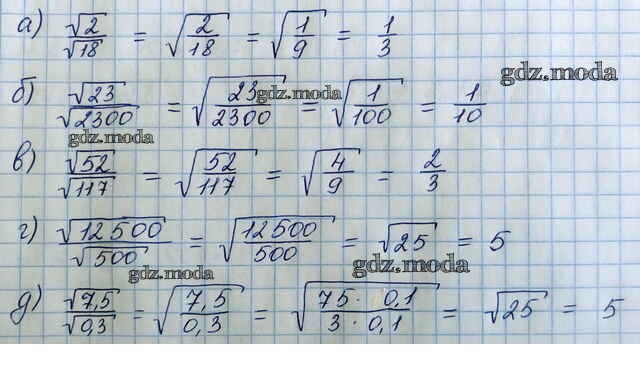 а) √2/√18 = √(2/18) = √(1/9) = 1/3
gdz.moda
б) √23/√2300 = √(23/2300) = √(1/100) = 1/10
gdz.moda
gdz.moda
в) √52/√117 = √(52/117) = √(4/9) = 2/3
г) √12500/√500 = √(12500/500) = √25 = 5
gdz.moda
gdz.moda
д) √7,5/√0,3 = √(7,5/0,3) = √(75 · 0,1/3 · 0,1) = √25 = 5